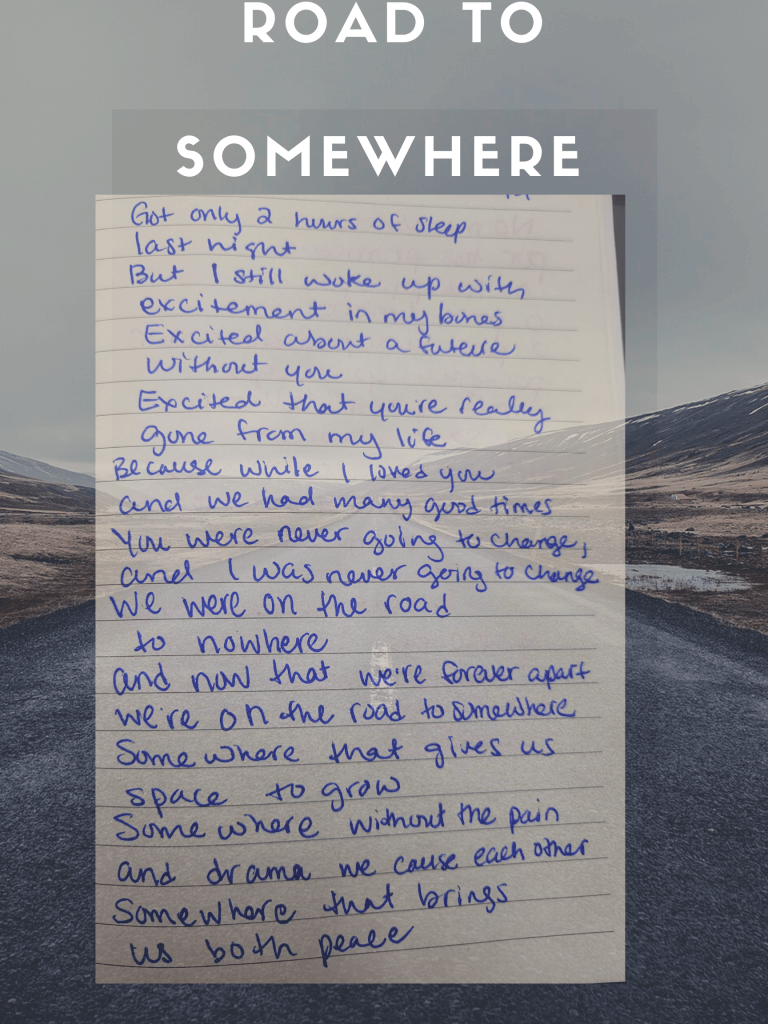 ROAD TO
SOMEWHERE
Got only 2 hours of sleep
last night
But I still woke up with
excitement in my bones
Excited about a future
without you
Excited that you're really
gone from my life
Because while I loved you
and we had many good times
You were never going to change,
and I was never going to change
We were on the road
to nowhere
and now that we're forever apart
we're on the road to somewhere
Somewhere that gives us
space to grow
Somewhere without the pain
and drama we cause each other
Somewhere that brings
us both peace